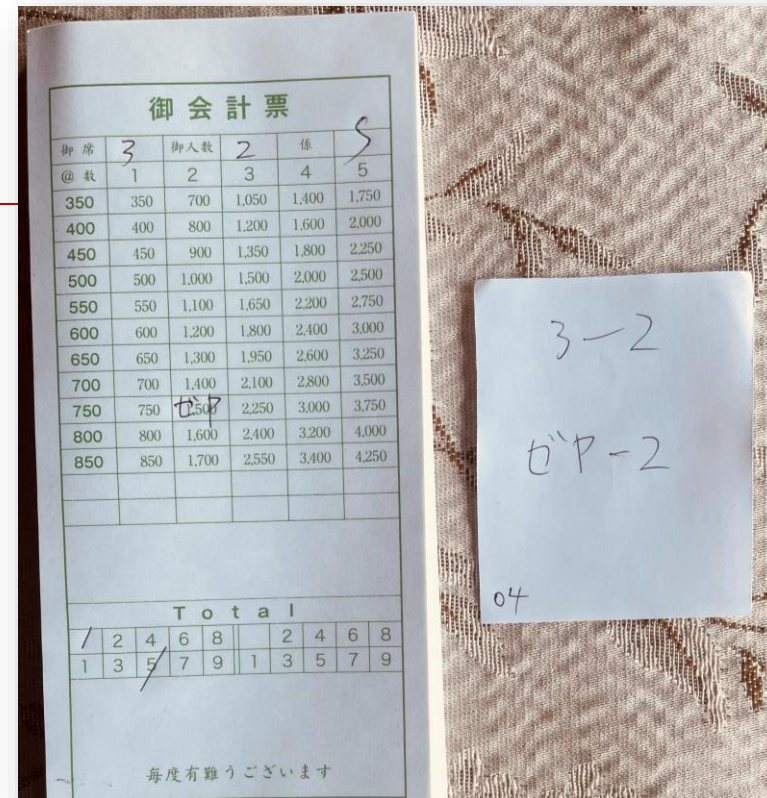 御会計票
御席 3 御人数 2 係 S
@ 数 1 2 3 4 5
350 350 700 1,050 1,400 1,750
400 400 800 1,200 1,600 2,000
450 450 900 1,350 1,800 2,250
500 500 1,000 1,500 2,000 2,500
550 550 1,100 1,650 2,200 2,750
600 600 1,200 1,800 2,400 3,000
650 650 1,300 1,950 2,600 3,250
700 700 1,400 2,100 2,800 3,500
750 750 ゼア 2,250 3,000 3,750
800 800 1,600 2,400 3,200 4,000
850 850 1,700 2,550 3,400 4,250
Total
2 4 6 8 2 4 6 8
1 3 5 7 9 1 3 5 7 9
毎度有難うございます
3-2
ゼア-2
04